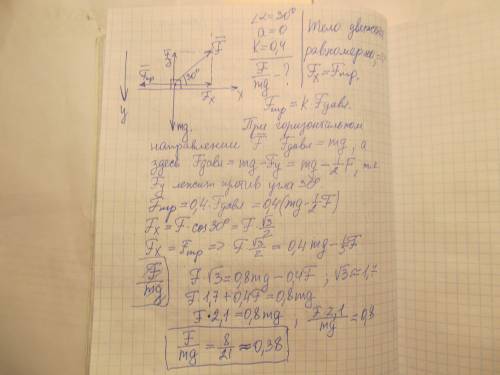 ∠α = 30°
a = 0
K = 0,4
F/mg - ?
Тело движется
равномерно, =>
Fx = Fтр.
Fтр F⃗ Fy 30° Fx x y mg.
Fтр = k · Fдавл.
При горизонтальном
направлении F⃗ Fдавл = mg, а
здесь Fдавл = mg - Fy = mg - 1/2 F, т.к.
Fy лежит против угла 30°
Fтр = 0,4 · Fдавл = 0,4(mg - 1/2 F)
Fx = F · cos 30° = F · √3/2
Fx = Fтр => F · √3/2 = 0,4mg -
F/mg
F√3 = 0,8mg - 0,4F ; √3 ≈ 1,7
F · 1,7 + 0,4F = 0,8mg
F · 2,1 = 0,8mg ; F 2,1/mg = 0,8
F/mg = 8/21 ≈ 0,38